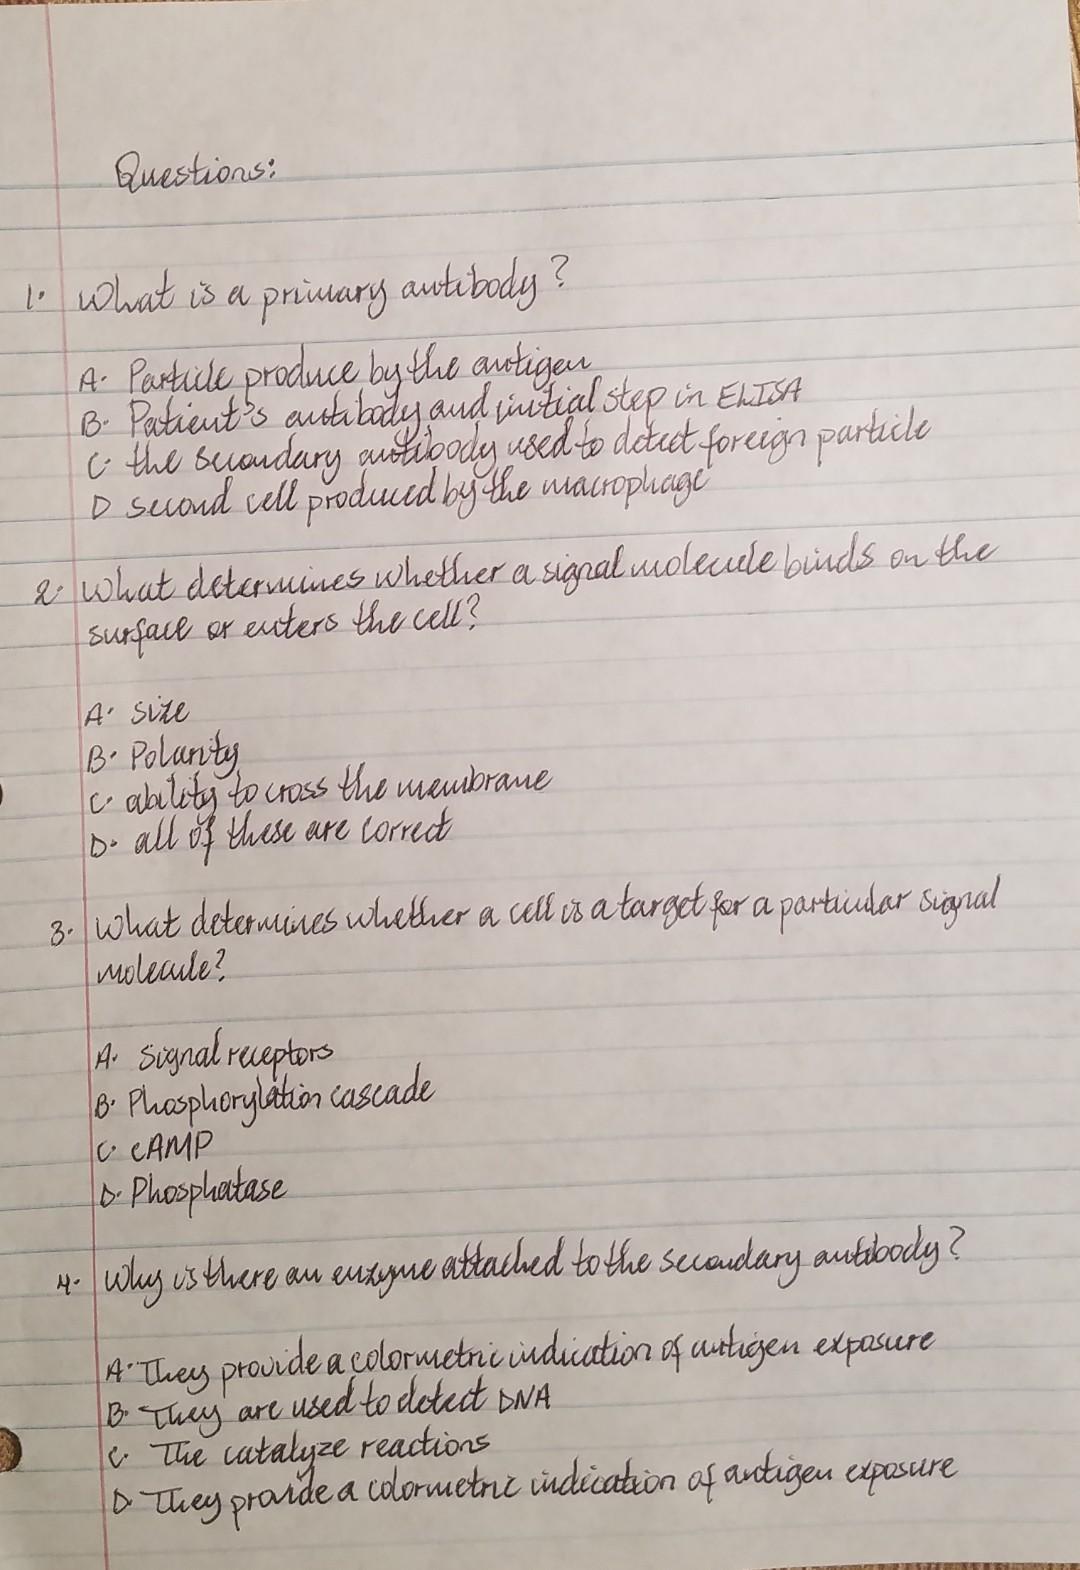 Questions:
1. What is a primary antibody?
A. Particle produce by the antigen
B. Patient's antibody and initial step in ELISA
C. the secondary antibody used to detect foreign particle
D second cell produced by the macrophage
2. What determines whether a signal molecule binds on the
surface or enters the cell?
A. size
B. Polarity
C. ability to cross the membrane
D. all of these are correct
3. What determines whether a cell is a target for a particular signal
molecule?
A. Signal receptors
B. Phosphorylation cascade
C. cAMP
D. Phosphatase
4. Why is there an enzyme attached to the secondary antibody?
A. They provide a colormetric indication of antigen exposure
B. They are used to detect DNA
C. The catalyze reactions
D They provide a colormetric indication of antigen exposure